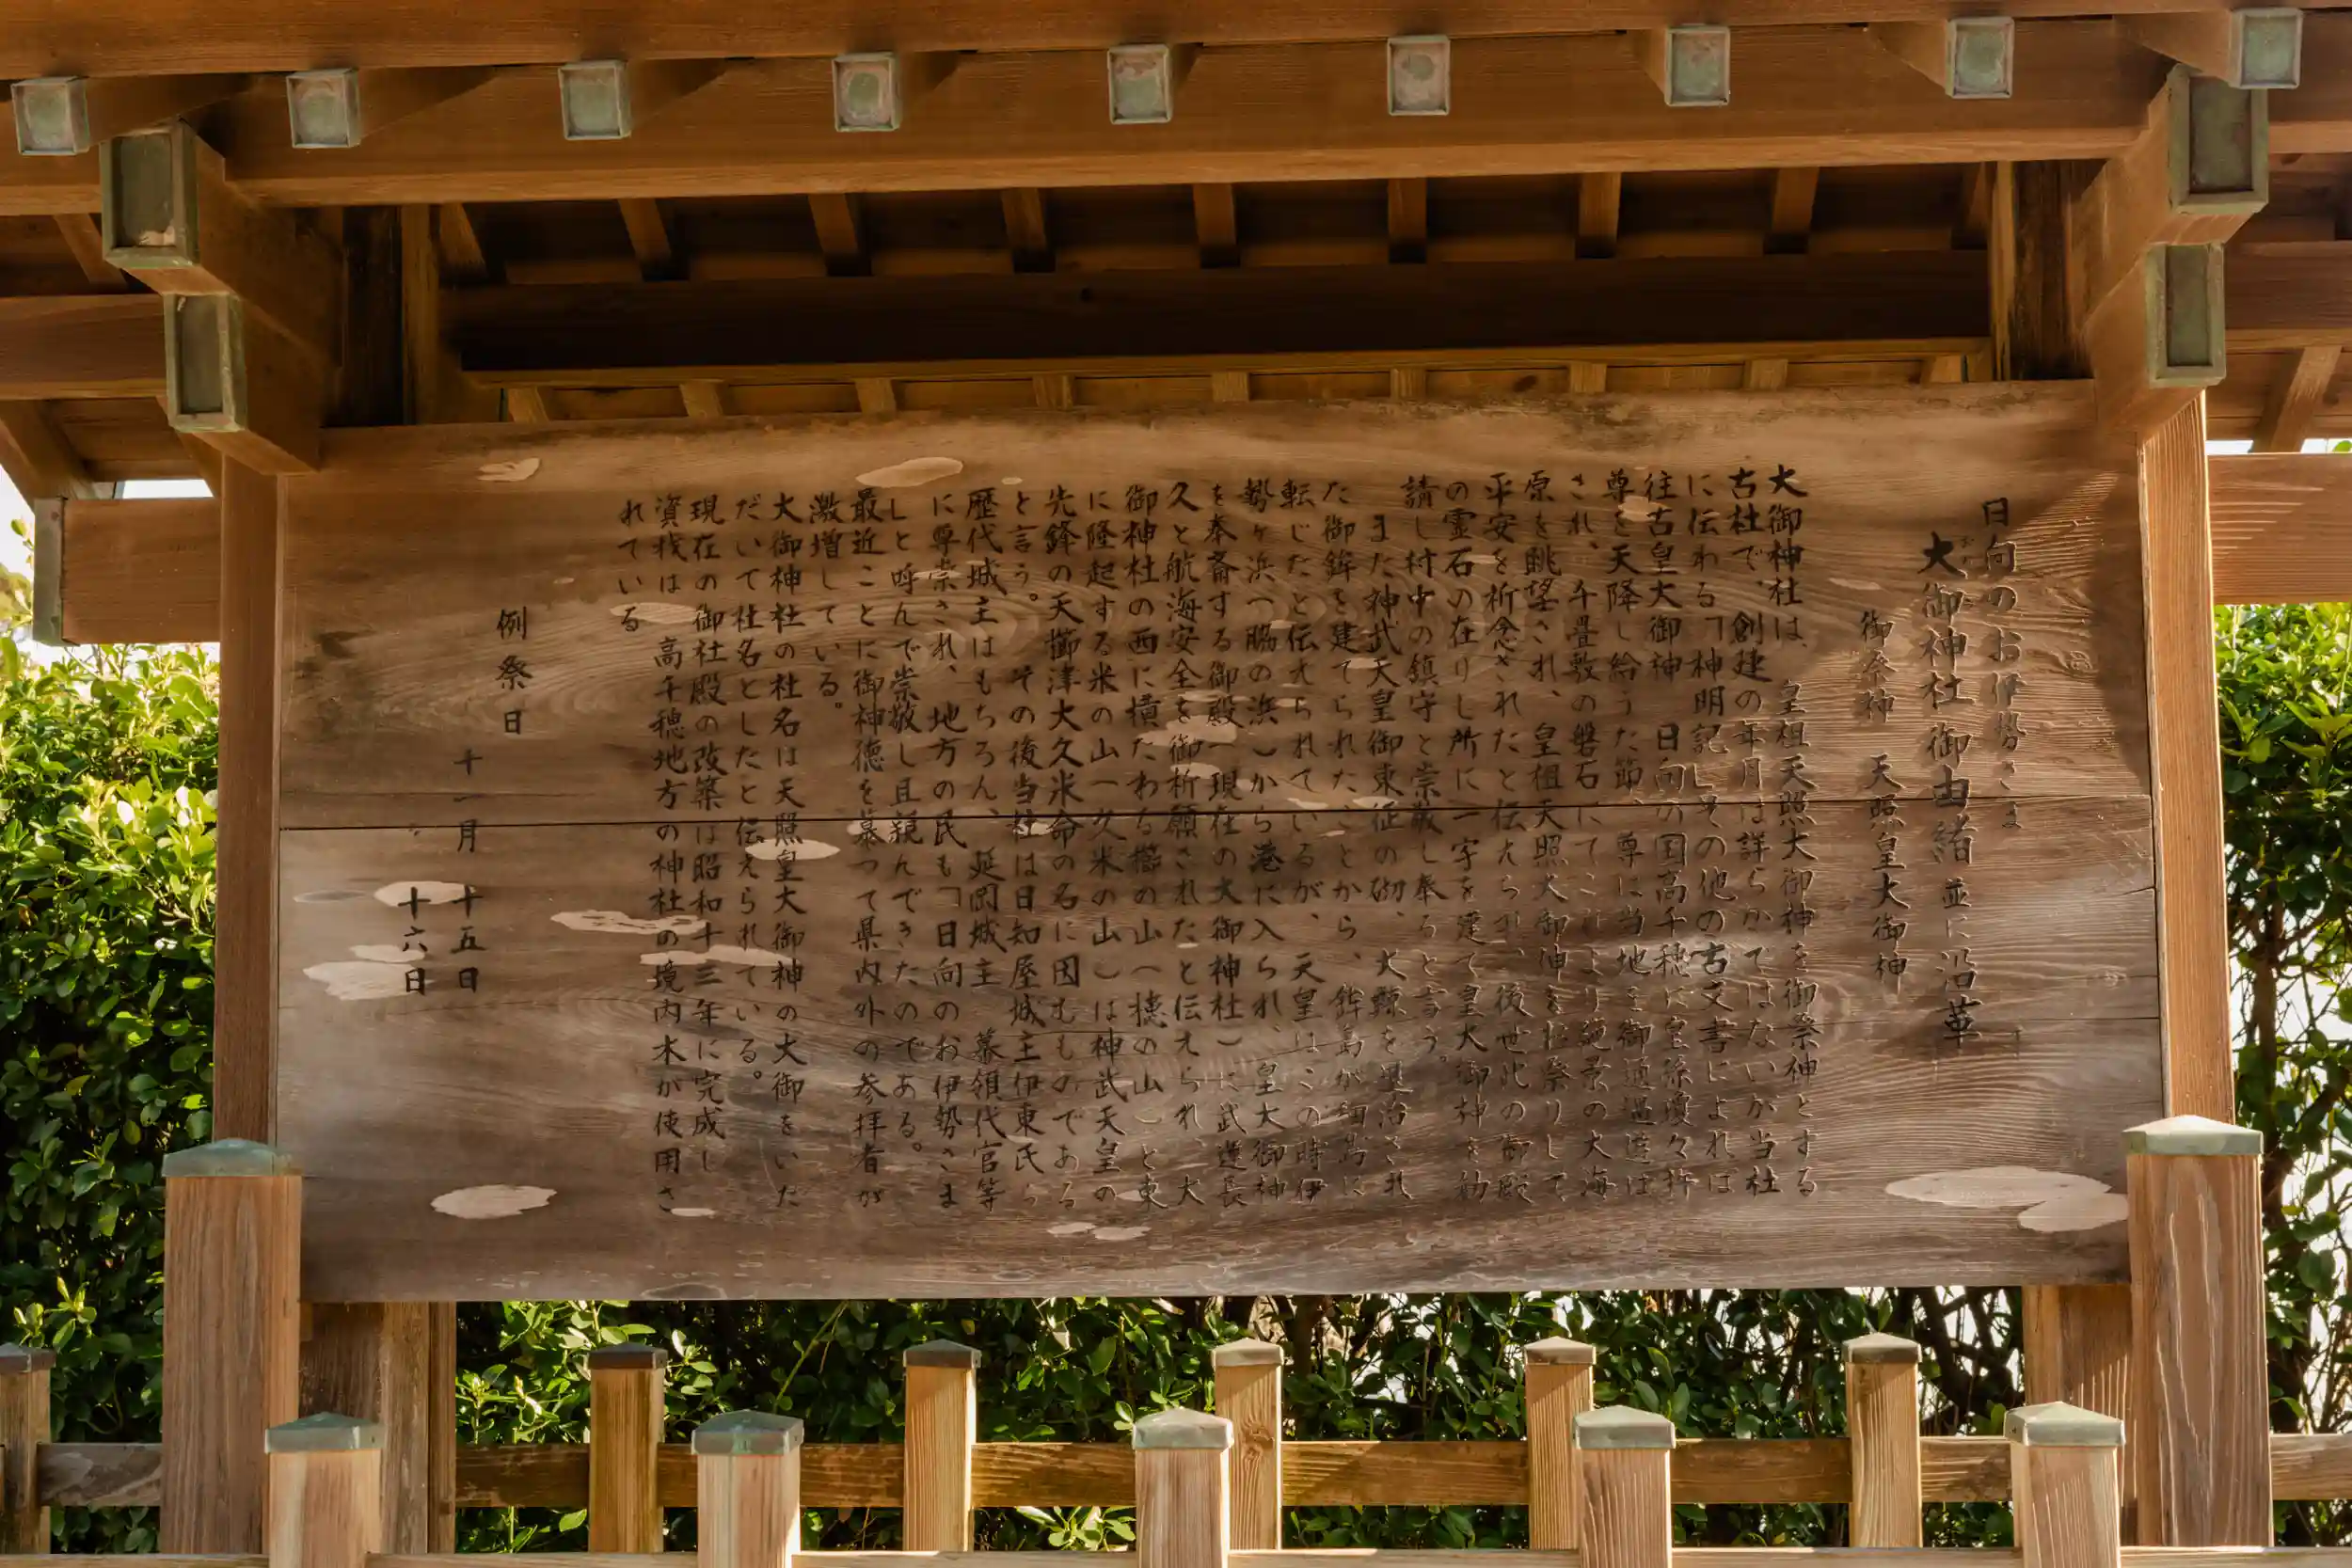 日向のお伊勢さま
大御神社御由緒並に沿革
御祭神 天照皇大御神
大御神社は、皇祖天照大御神を御祭神とする
古社で、創建の年月は詳らかではないが当社
に伝わる「神明記」その他の古文書によれば
往古皇大御神、日向の国高千穂に皇孫瓊々杵
尊を天降し給うた節、尊に当地を御通過遊ば
され、千畳敷の磐石にてこれより絶景の大海
原を眺望され、皇祖天照大御神をお祭りして
平安を祈念されたと伝えられ、後世此の御殿
の霊石の在りし所に一宇を建て皇大御神を勧
請し村中の鎮守と崇敬し奉ると言う。
また神武天皇御東征の砌、大鯨を退治され
た御鉾を建てられたことから、鉾島が細島に
転じたと伝えられているが、天皇はこの時伊
勢ヶ浜(脇の浜)から港に入られ、皇大御神
を奉斎する御殿(現在の大御神社)に武運長
久と航海安全を御祈願されたと伝えられ、大
御神社の西に横たわる櫛の山(穂の山)と東
に隆起する米の山(久米の山)は神武天皇の
先鋒の天櫛津大久米命の名に因むものである
と言う。その後当社は日知屋城主伊東氏ら
歴代城主はもちろん、延岡城主、幕領代官等
に尊崇され、地方の民も「日向のお伊勢さま
」と呼んで崇敬し且親んできたのである。
最近ことに御神徳を慕って県内外の参拝者が
激増している。
大御神社の社名は天照皇大御神の大御をいた
だいて社名としたと伝えられている。
現在の御社殿の改築は昭和十三年に完成し
資材は、高千穂地方の神社の境内木が使用さ
れている
例祭日
十一月 十五日
十六日